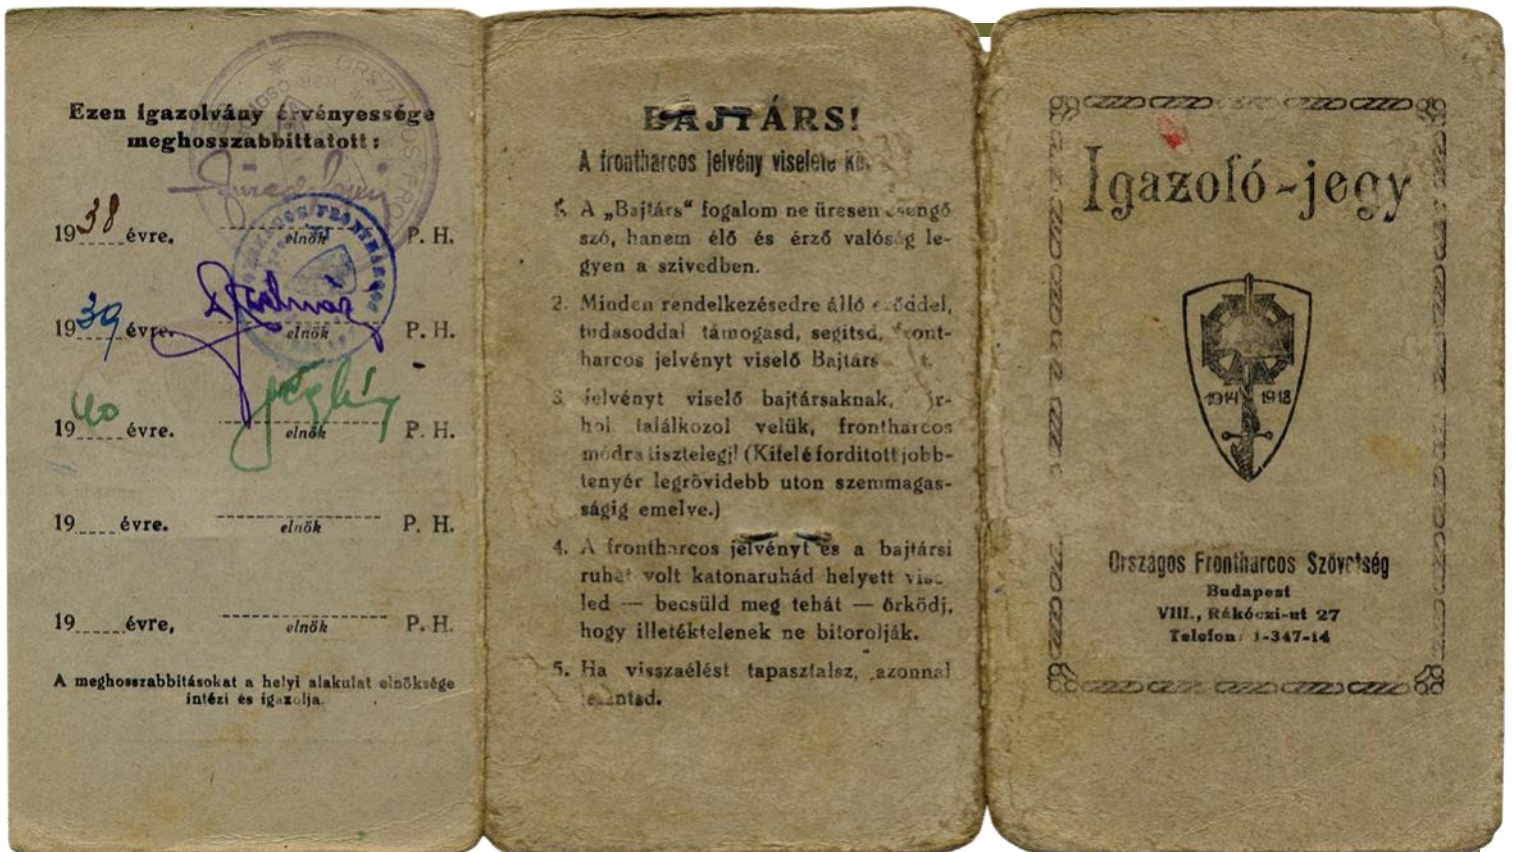 Ezen igazolvány érvényessége
meghosszabbittatott:
1938 évre. elnök P. H.
1939 évre. elnök P. H.
1940 évre. elnök P. H.
19 évre. elnök P. H.
19 évre, elnök P. H.
A meghosszabbitásokat a helyi alakulat elnöksége
intézi és igazolja.
BAJTÁRS!
A frontharcos jelvény viselete
1. A „Bajtárs“ fogalom ne üresen csengő
szó, hanem élő és érző valóság le-
gyen a szivedben.
2. Minden rendelkezésedre álló erőddel,
tudasoddal támogasd, segitsd, front-
harcos jelvényt viselő Bajtárs
3. jelvényt viselő bajtársaknak,
hol találkozol velük, frontharcos
módra tisztelegj! (Kifelé forditott jobb-
tenyér legrövidebb uton szemmagas-
ságig emelve.)
4. A frontharcos jelvényt és a bajtársi
ruhát volt katonaruhád helyett vise
led — becsüld meg tehát — őrködj,
hogy illetéktelenek ne bitorolják.
5. Ha visszaélést tapasztalsz, azonnal
Igazoló-jegy
1914 1918
Országos Frontharcos Szövetség
Budapest
VIII., Rákóczi-ut 27
Telefon: 1-347-14